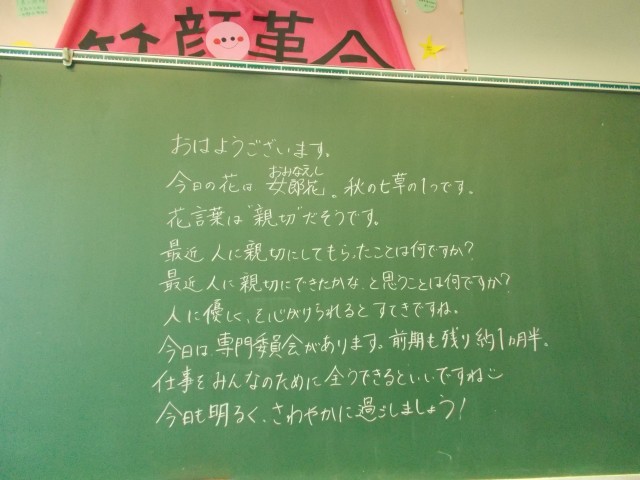 笑顔革命
おはようございます。
今日の花は 女郎花。秋の七草の1つです。
おみなえし
花言葉は"親切"だそうです。
最近 人に親切にしてもらったことは何ですか?
最近 人に 親切にできたかな、と思うことは何ですか?
人に優しく、を心がけられると すてきですね。
今日は、専門委員会があります。前期も残り約1ヵ月半。
仕事をみんなのために 全うできるといいですね
今日も明るく、さわやかに過ごしましょう!